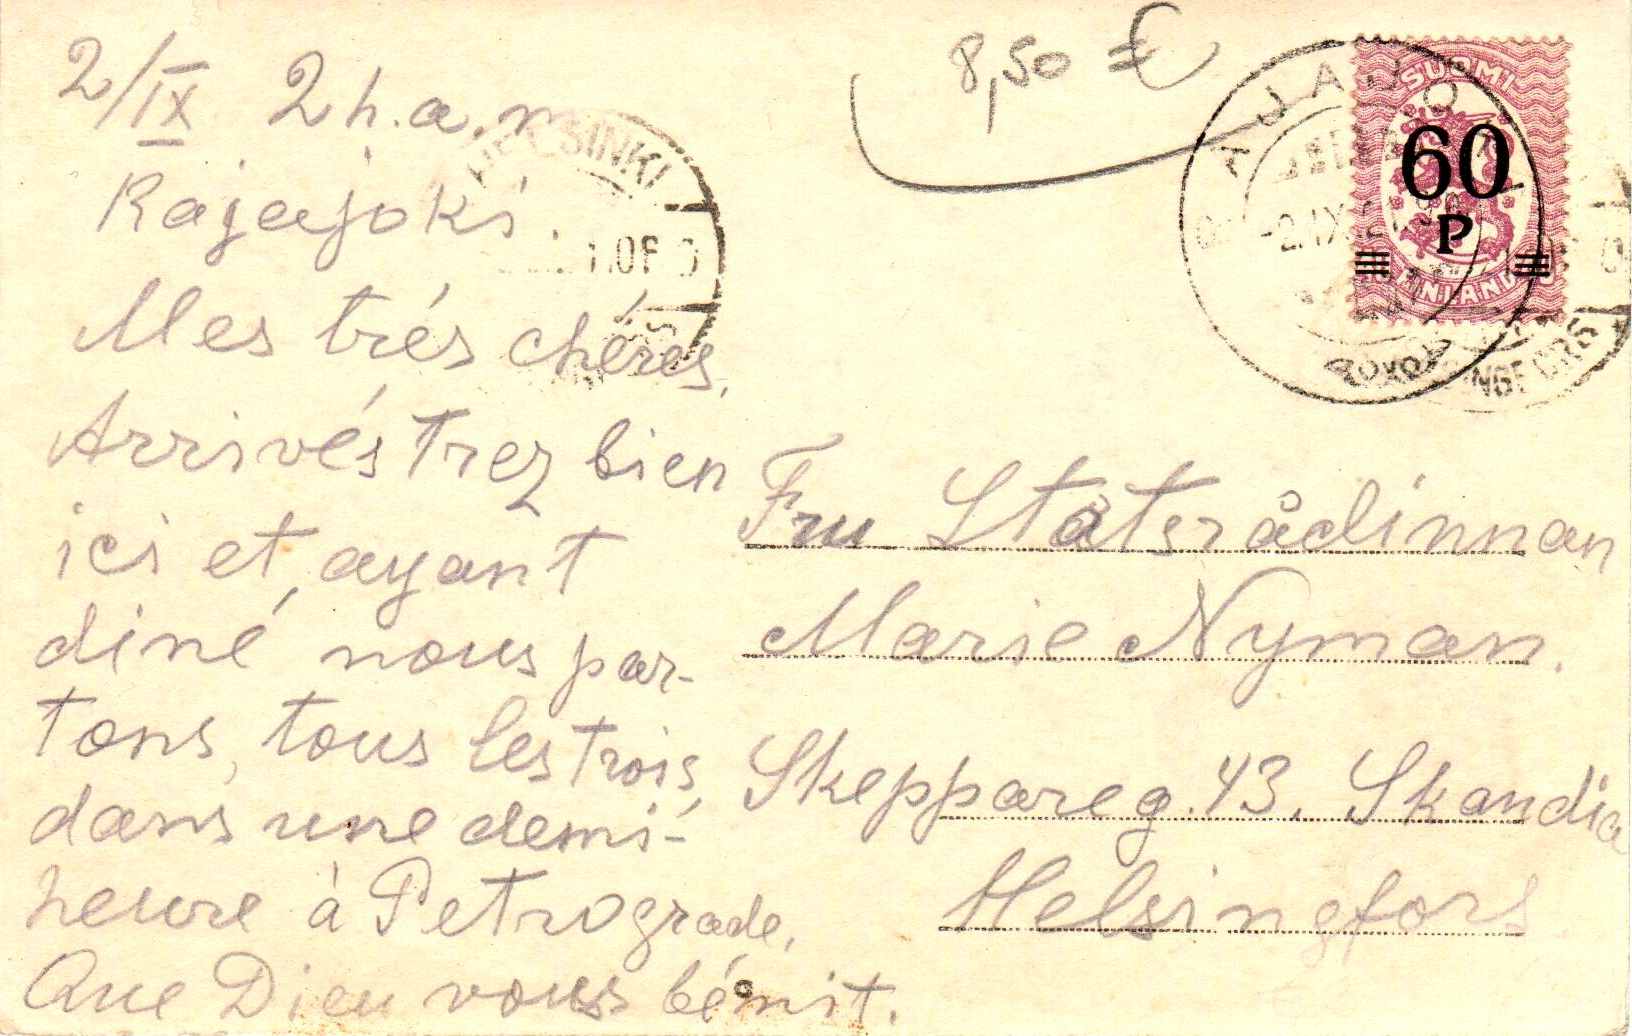 8,50 €
2/IX 2 h. a. m
Rajajoki.
Mes trés chéres,
Arrivés trez bien
ici et, ayant
diné nous par-
tons, tous les trois,
dans une demi-
heure à Petrograde,
Que Dieu vous bénit.
SUOMI
60
P
FINLAND
RAJAJOKI
HELSINKI
Fru Statsrådinnan
Marie Nyman.
Skeppareg. 43. Skandia
Helsingfors